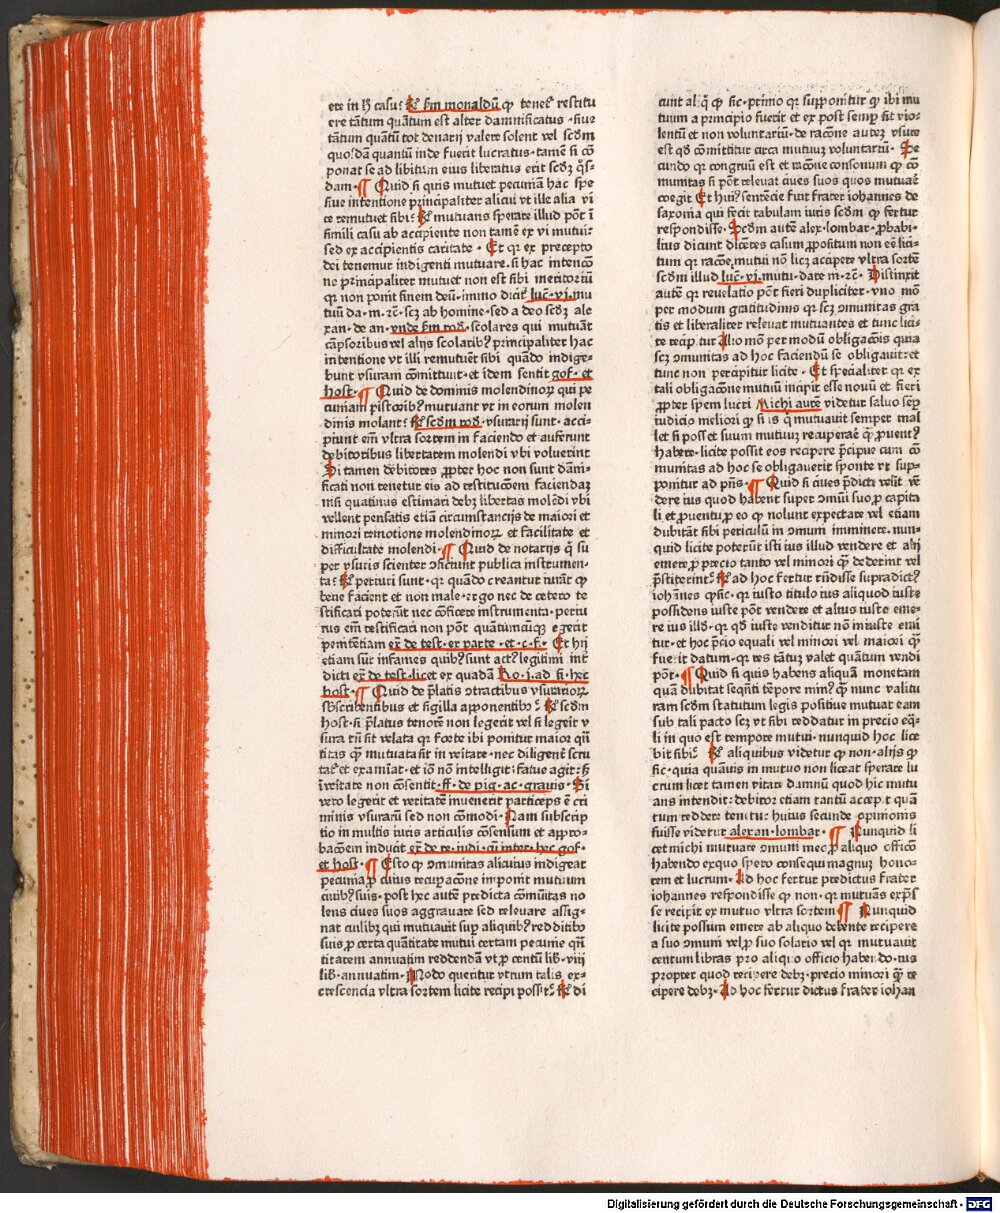 ere in hͦ casu? Rͬ ẜm monaldū ꝙ tenetͬ restitu
ere tātum quātum est alter damnificatus · siue
tātum quātū tot denarij valere solent vel scd̄m
quosdā quantū inde fuerit lucratus · tamē si cō
ponat se ad libitum eius liberatus erit scd̄ꝫ q̄s-
dam · ¶ Quid si quis mutuet pecuniā hac spe
siue intentione principaliter alicui vt ille alia vi
ce remutuet sibi? Rͬ mutuans sperare illud pōt ī
simili casu ab accipiente non tamē ex vi mutui:
sed ex accipientis caritate · Et qꝛ ex precepto
dei tenemur indigenti mutuare · si hac intencō
ne principaliter mutuet non est sibi meritoriū
qꝛ non ponit finem deū · immo dicitͬ luč · vj · mu
tuū da · m · rč · scꝫ ab homine · sed a deo scd̄ꝫ ale
xan · de an · vnde ẜm rod̄ · scolares qui mutuāt
cāpsoribus vel alijs scolaribꝰ principaliter hac
intentione vt illi remutuēt sibi quādo indige-
bunt vsuram cōmittunt · et idem sentit gof · et
host · ¶ Quid de dominis molendinoꝝ qui pe
cuniam pistoribꝰ mutuant vt in eorum molen
dinis molant? Rͬ scd̄m rod̄ · vsurarij sunt · acci-
piunt em̄ vltra sortem in faciendo et auferunt
debitoribus libertatem molendi vbi voluerint
Si tamen debitores ꝓpter hoc non sunt dāni-
ficati non tenetur eis ad restitucōem faciendaꝫ
nisi quatinus estimari debꝫ libertas molēdi vbi
vellent pensatis etiā circumstancijs de maiori et
minori remotione molendinoꝝ et facilitate et
difficultate molendi · ¶ Quid de notarijs q̄ su
per vsuris scienter ꝯficiunt publica instrumen-
ta? Rͬ periuri sunt · qꝛ quādo creantur iurāt ꝙ
bene facient et non male · ergo nec de cetero te-
stificari poterūt nec cōficere instrumenta · periu
rus em̄ testificari non pōt quātumcūqꝫ egerit
penitētiam ex̄ de test · ex parte · et · c · f · Et hij
etiam sūt infames quibꝰ sunt actꝰ legitimi int̄
dicti ex̄ de test · licet ex quadā Ro · j · ad fi · hec
host · ¶ Quid de p̄latis ꝯtractibus vsurarioꝝ
sb̄scribentibus et sigilla apponentibꝰ? Rͬ scd̄m
host · si p̄latus tenorē non legerit vel si legerit v
sura tn̄ sit velata qꝛ forte ibi ponitur maior qn̄
titas q̄ꝫ mutuata sit in veritate · nec diligentͬ scru
tatͬ et examīat · et iō nō intelligit: fatue agit: sꝫ
ī veritate non cōsentit · ff · de pig · ac · grauis · Si
vero legerit et veritatē inuenerit particeps ē cri
minis vsurarū sed non cōmodi · Nam subscrip
tio in multis iuris articulis cōsensum et appro-
bacōem inducit ex̄ de re · iudi · cū inter · hec gof ·
et host · ¶ Esto ꝙ ꝯmunitas alicuius indigeat
pecunia ꝓ cuius recuꝑacōne imponit mutuum
ciuibꝰ suis · post hec autē predicta cōmunitas no
lens ciues suos aggrauare sed releuare assig-
nat cuilibꝫ qui mutuauit suꝑ aliquibꝰ redditibꝰ
suis ꝓ certa quātitate mutui certam pecunie qn̄
titatem annuatim reddendā vt ꝓ centū lib̄ · viij
lib̄ · annuatim · Modo queritur vtrum talis ex-
crescencia vltra sortem licite recipi possit? Rͬ di
cunt al · q̄ ꝙ sic · primo qꝛ supponitur ꝙ ibi mu
tuum a principio fuerit et ex post semꝑ sit vio-
lentū et non voluntariū · de racōne auteꝫ vsure
est qd̄ cōmittitur circa mutuuꝫ voluntariū · Se
cundo qꝛ congruū est et racōne consonum ꝙ cō
munitas si pōt releuat ciues suos quos mutuare
coegit Et huiꝰ sentēcie fuit frater iohannes de
saxonia qui fecit tabulam iuris scd̄m ꝙ fertur
respondisse · Scd̄m autē alex · lombar · ꝓbabi-
lius dicunt dicētes casum ꝓpositum non eē lici-
tum qꝛ racōne mutui nō licꝫ accipere vltra sortē
scd̄m illud luč · vj · mutu · date · m · rč · Distinxit
autē qꝛ reuelatio pōt fieri dupliciter · vno mō
per modum gratitudinis qꝛ scꝫ ꝯmunitas gra
tis et liberaliter releuat mutuantes et tunc lici-
te recipitur Alio mō per modū obligacōis quia
scꝫ ꝯmunitas ad hoc faciendū se obligauit: et
tunc non percipitur licite · Et specialiter qꝛ ex
tali obligacōne mutuū incipit esse nouū et fieri
ꝓpter spem lucri Michi autē videtur saluo semꝑ
iudicio meliori ꝙ si is q̄ mutuauit semper mal
let si posset suum mutuuꝫ recuperare q̄ꝫ prouentꝰ
habere · licite possit eos recipere p̄cipue cum cō
munitas ad hoc se obligauerit sponte vt sup-
ponitur ad pn̄s · ¶ Quid si ciues p̄dicti velīt vē
dere ius quod habent super ꝯmūi suo ꝓ capita
li et ꝓuentu ꝓ eo ꝙ nolunt expectare vel etiam
dubitāt sibi periculū in ꝯmuni imminere · nun-
quid licite poterūt isti ius illud vendere et alij
emere ꝓ precio tanto vel minori q̄ꝫ dederint vel
p̄stiterint? Rͬ ad hoc fertur rn̄disse supradictꝰ
iohānes ꝙ sic · qꝛ iusto titulo ius aliquod iuste
possidens iuste pōt vendere et alius iuste eme-
re ius illd̄ · qꝛ qd̄ iuste venditur nō iniuste emi
tur · et hoc p̄cio equali vel minori vel maiori q̄ꝫ
fuerit datum · qꝛ res tātuꝫ valet quātum vendi
pōt · ¶ Quid si quis habens aliquā monetam
quā dubitat seq̄nti tēpore minꝰ q̄ꝫ nunc valitu
ram scd̄m statutum legis positiue mutuat eam
sub tali pacto scꝫ vt sibi reddatur in precio eq̄-
li in quo est tempore mutui · nunquid hoc lice
bit sibi? Rͬ aliquibus videtur ꝙ non · alijs ꝙ
sic · quia quāuis in mutuo non liceat sperare lu
crum licet tamen vitare damnū quod hic mutu
ans intendit: debitor etiam tantū accepit quā
tum reddere tenetur: huius secunde opinionis
fuisse videtur alexan · lombar · ¶ Nunquid li
cet michi mutuare ꝯmuni meo ꝓ aliquo officō
habendo ex quo spero consequi magnuꝫ hono-
rem et lucrum · Ad hoc fertur predictus frater
iohannes respondisse ꝙ non · qꝛ mutuans exp̄s
se recipit ex mutuo vltra sortem ¶ Nunquid
licite possum emere ab aliquo debente recipere
a suo ꝯmuni vel ꝓ suo solario vel qꝛ mutuauit
centum libras pro aliquo officio habendo · ius
propter quod recipere debꝫ · precio minori q̄ꝫ re
cipere debꝫ · Ad hoc fertur dictus frater iohan
Digitalisierung gefördert durch die Deutsche Forschungsgemeinschaft · DFG